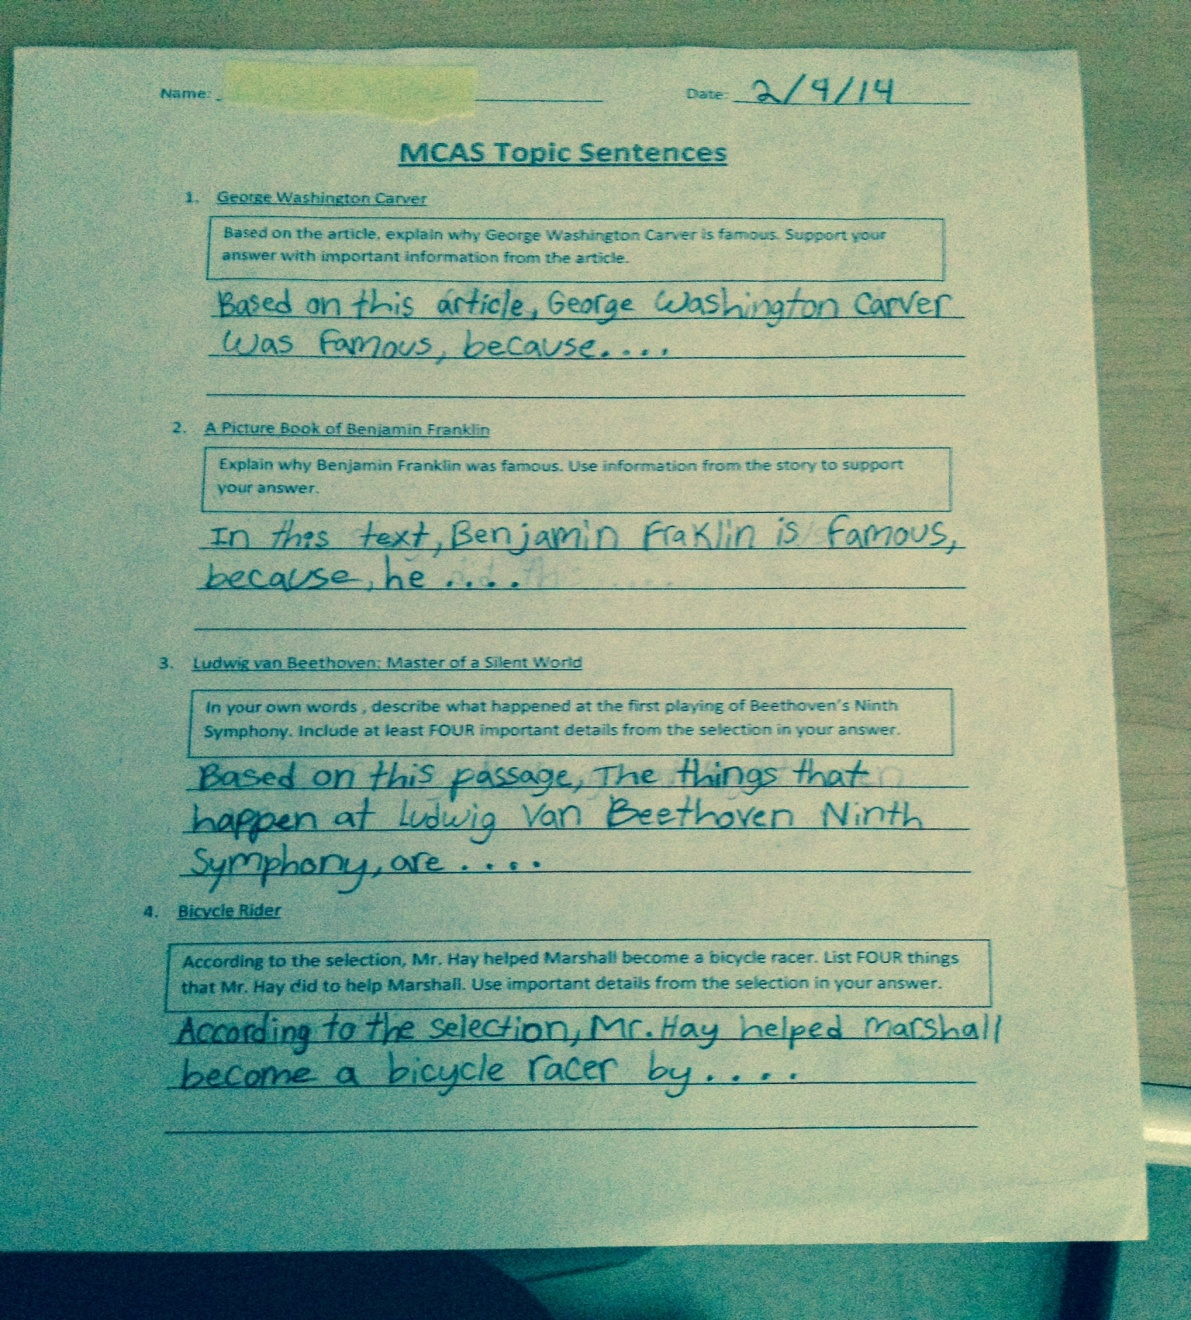 Name: Date: 2/4/14
MCAS Topic Sentences
1. George Washington Carver
Based on the article, explain why George Washington Carver is famous. Support your
answer with important information from the article.
Based on this article, George Washington Carver
was famous, because....
2. A Picture Book of Benjamin Franklin
Explain why Benjamin Franklin was famous. Use information from the story to support
your answer.
In this text, Benjamin Fraklin is famous,
because, he ....
3. Ludwig van Beethoven: Master of a Silent World
In your own words , describe what happened at the first playing of Beethoven's Ninth
Symphony. Include at least FOUR important details from the selection in your answer.
Based on this passage, The things that
happen at Ludwig Van Beethoven Ninth
Symphony, are ....
4. Bicycle Rider
According to the selection, Mr. Hay helped Marshall become a bicycle racer. List FOUR things
that Mr. Hay did to help Marshall. Use important details from the selection in your answer.
According to the selection, Mr. Hay helped marshall
become a bicycle racer by....